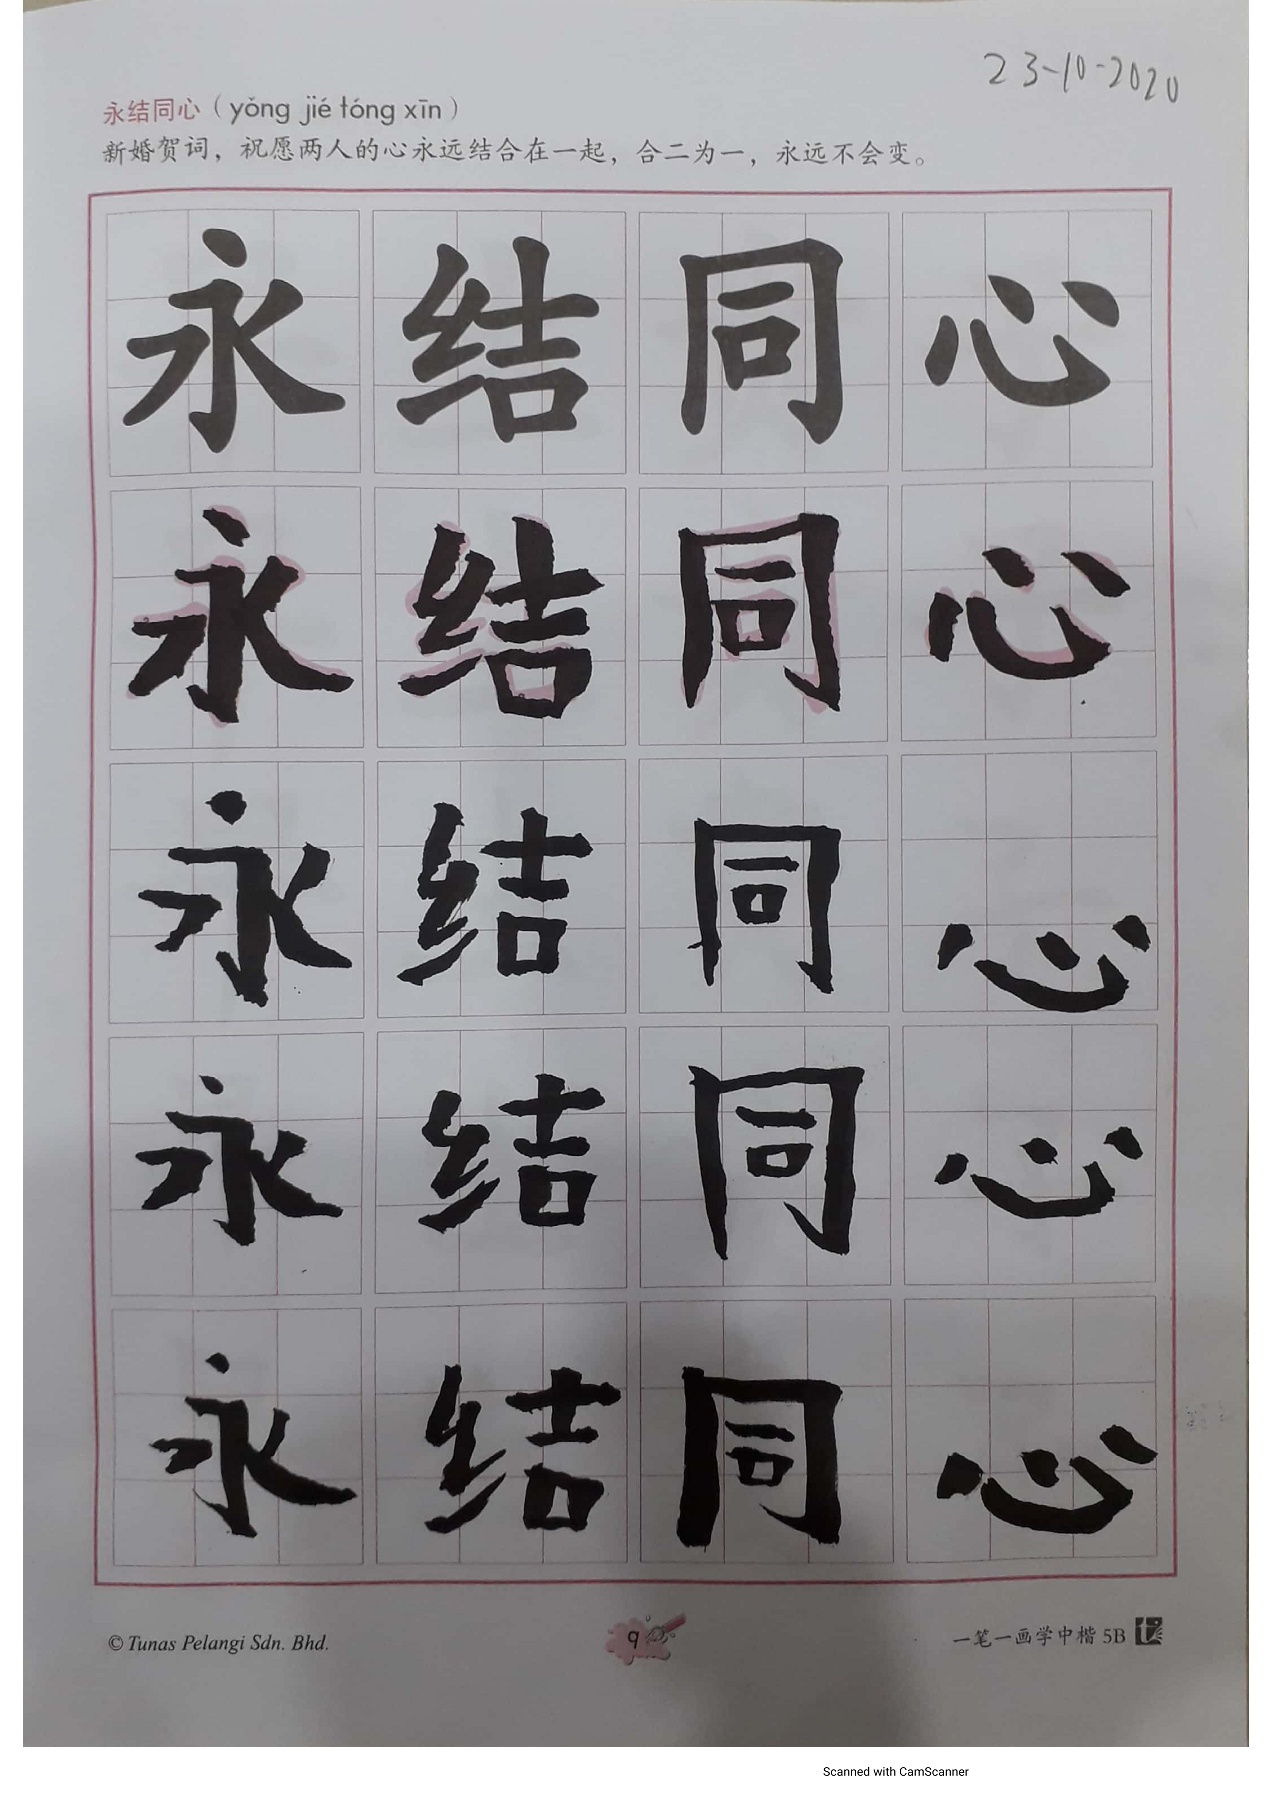 23-10-2020
永结同心（yǒng jié tóng xīn）
新婚贺词，祝愿两人的心永远结合在一起，合二为一，永远不会变。
永 结 同 心
永 结 同 心
永 结 同 心
永 结 同 心
永 结 同 心
© Tunas Pelangi Sdn. Bhd.
9
一笔一画学中楷 5B
Scanned with CamScanner